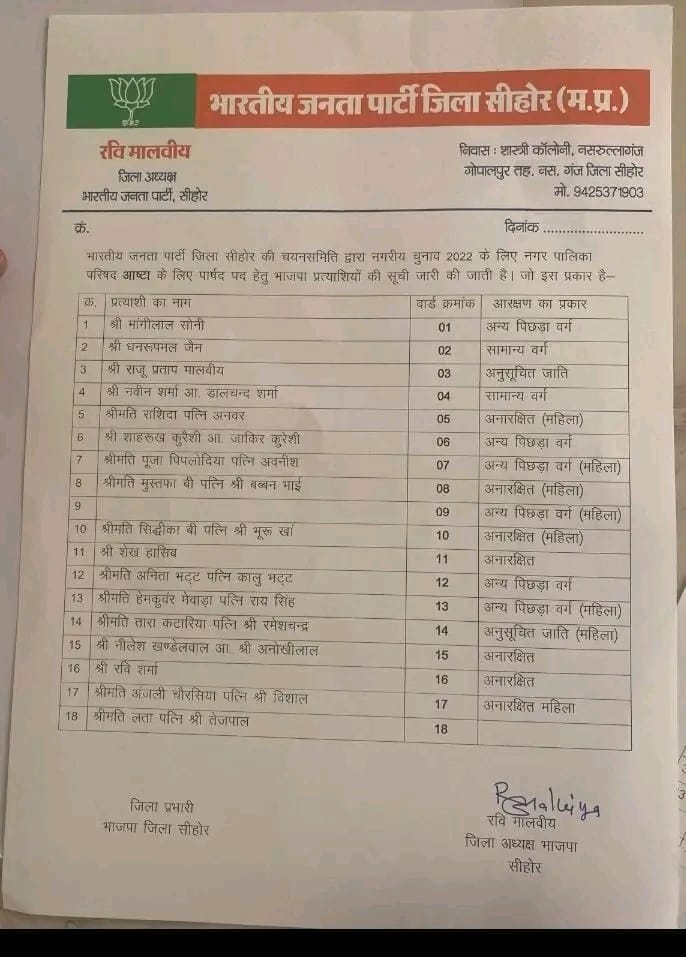 भारतीय जनता पार्टी जिला सीहोर (म.प्र.)
रवि मालवीय
जिला अध्यक्ष
भारतीय जनता पार्टी, सीहोर
निवास : शास्त्री कॉलोनी, नसरुल्लागंज
गोपालपुर तह. नस. गंज जिला सीहोर
मो. 9425371903
क्रं.
दिनांक ..........................
भारतीय जनता पार्टी जिला सीहोर की चयनसमिति द्वारा नगरीय चुनाव 2022 के लिए नगर पालिका
परिषद आष्टा के लिए पार्षद पद हेतु भाजपा प्रत्याशियों की सूची जारी की जाती है। जो इस प्रकार है–
क्र. प्रत्याशी का नाम वार्ड क्रमांक आरक्षण का प्रकार
1 श्री मांगीलाल सोनी 01 अन्य पिछड़ा वर्ग
2 श्री धनरूपमल जैन 02 सामान्य वर्ग
3 श्री राजू प्रताप मालवीय 03 अनुसूचित जाति
4 श्री नवीन शर्मा आ. डालचन्द शर्मा 04 सामान्य वर्ग
5 श्रीमति राशिदा पत्नि अनवर 05 अनारक्षित (महिला)
6 श्री शाहरूख कुरैशी आ. जाकिर कुरेशी 06 अन्य पिछड़ा वर्ग
7 श्रीमति पूजा पिपलोदिया पत्नि अवनीश 07 अन्य पिछड़ा वर्ग (महिला)
8 श्रीमति मुस्तफा बी पत्नि श्री बब्बन भाई 08 अनारक्षित (महिला)
9 09 अन्य पिछड़ा वर्ग (महिला)
10 श्रीमति सिद्दीका बी पत्नि श्री भूरू खां 10 अनारक्षित (महिला)
11 श्री शेख हासिब 11 अनारक्षित
12 श्रीमति अनिता भट्ट पत्नि कालु भट्ट 12 अन्य पिछड़ा वर्ग
13 श्रीमति हेमकुवंर मेवाड़ा पत्नि राय सिंह 13 अन्य पिछड़ा वर्ग (महिला)
14 श्रीमति तारा कटारिया पत्नि श्री रमेशचन्द्र 14 अनुसूचित जाति (महिला)
15 श्री नीलेश खण्डेलवाल आ. श्री अनोखीलाल 15 अनारक्षित
16 श्री रवि शर्मा 16 अनारक्षित
17 श्रीमति अंजली चौरसिया पत्नि श्री विशाल 17 अनारक्षित महिला
18 श्रीमति लता पत्नि श्री तेजपाल 18
जिला प्रभारी
भाजपा जिला सीहोर
रवि मालवीय
जिला अध्यक्ष भाजपा
सीहोर